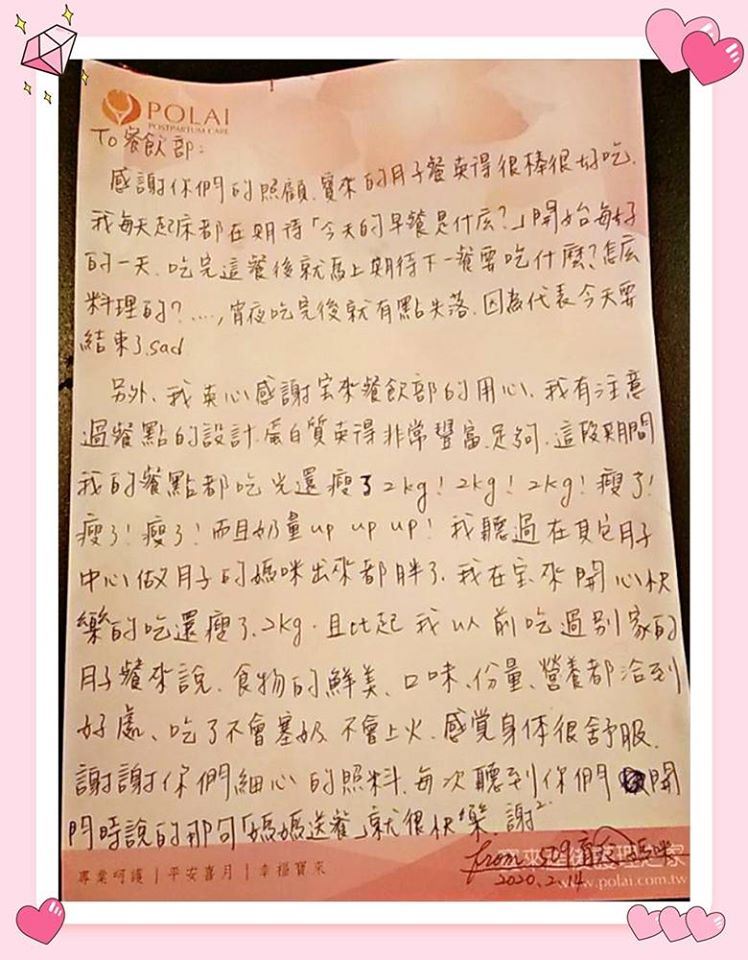 POLAI
POSTPARTUM CARE
To餐飲部:
感謝你們的照顧.寶來的月子餐真得很棒很好吃.
我每天起床都在期待「今天的早餐是什庅?」開始每好
的一天.吃完這餐後就馬上期待下一餐要吃什麼?怎庅
料理的?....,宵夜吃完後就有點失落.因為代表今天要
結束了.sad
另外、我衷心感謝宝來餐飲部的用心、我有注意
過餐點的設計.蛋白質真得非常豐富.足夠.這段期間
我的餐點都吃光還瘦了2kg!2kg!2kg!瘦了!
瘦了!瘦了!而且奶量up up up!我聽過在其它月子
中心做月子的媽咪出來都胖了.我在宝來開心快
樂的吃還瘦了.2kg.且比起我以前吃過別家的
月子餐來說.食物的鮮美、口味、份量、營養都洽到
好處、吃了不會塞奶不會上火.感覚身体很舒服.
謝謝你們細心的照料.每次聽到你們開
門時說的那句「媽媽送餐」就很快樂.謝²
from 509 媽咪
2020.2.14
專業呵護|平安喜月|幸福寶來
www.polai.com.tw